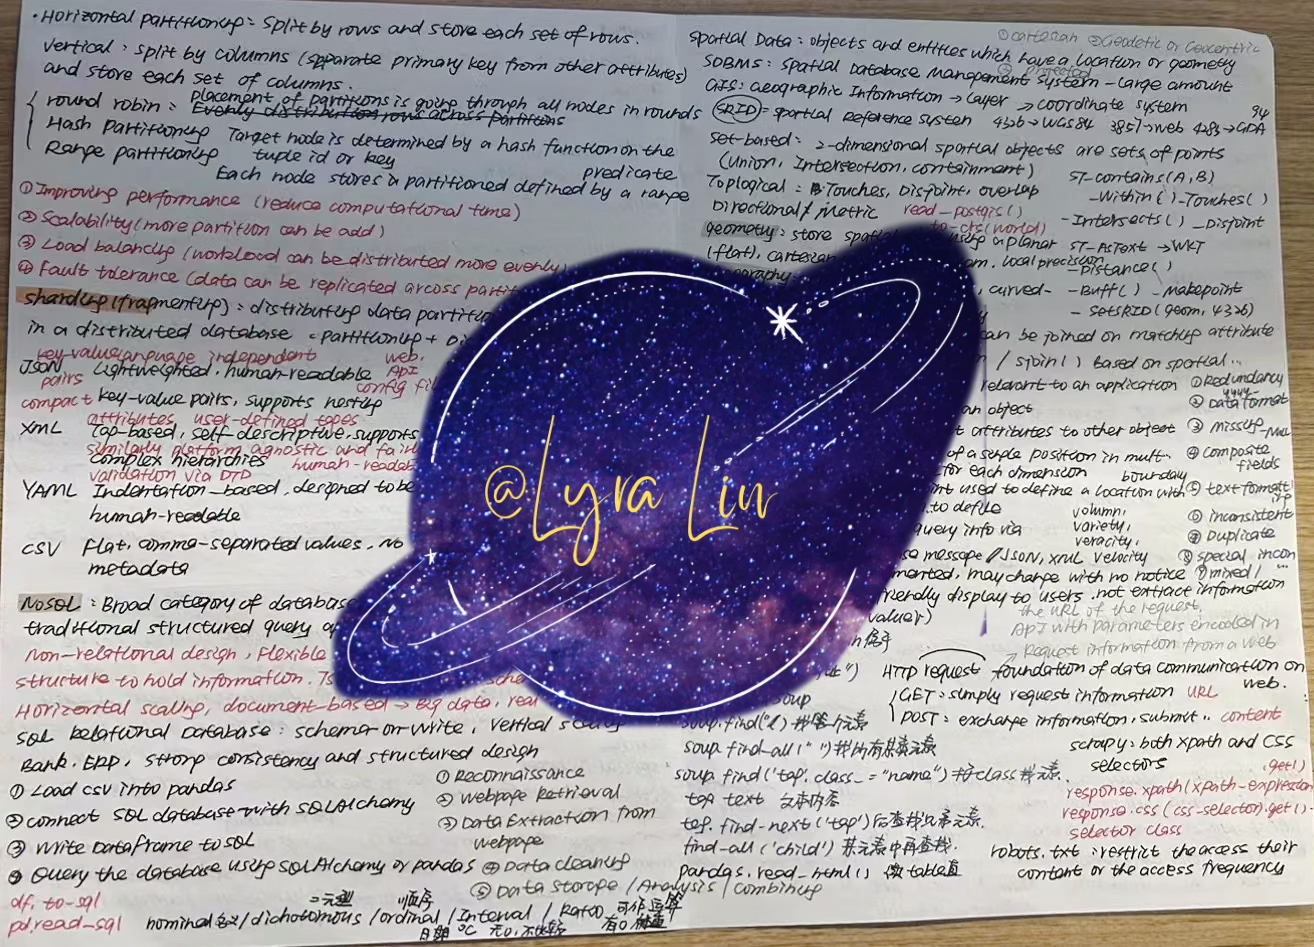 • Horizontal partitioning: split by rows and store each set of rows.
vertical: split by columns (separate primary key from other attributes)
and store each set of columns.
round robin: Placement of partitions is going through all nodes in rounds
Evenly distribution rows across partitions
Hash Partitioning Target node is determined by a hash function on the
tuple id or key
Range partitioning predicate
Each node stores a partitioned defined by a range
① Improving performance (reduce computational time)
② Scalability (more partition can be add)
③ Load balancing (workload can be distributed more evenly)
④ Fault tolerance (data can be replicated arcoss parti
sharding (fragmenting): distributing data partition
in a distributed database = partitioning + Di
key-value language independent web,
JSON Lightweighted, human-readable API
pairs config fil
compact key-value pairs, supports nesting
attributes user-defined types
XML Tag-based, self-descriptive, supports
similarly platform agnostic and fair
complex hierarchies human-readab
validation via DTD
YAML Indentation-based, designed to be
human-readable
CSV Flat, comma-separated values, no
metadata
NoSQL: Broad category of databas
traditional structured query
non-relational design, Flexible
structure to hold information.
Horizontal scaling, document-based → Big data, real
SQL Relational Database: schema-on-write, vertical scaling
Bank, ERP, strong consistency and structured design
① Load csv into pandas
② connect SQL database with SQLAlchemy
③ Write DataFrame to sql
④ Query the database using SQLAlchemy or pandas
df. to-sql
pd.read_sql
① Reconnaissance
② Webpage Retrieval
③ Data Extraction from
webpage
④ Data cleaning
⑤ Data Storage / Analysis / Combining
二元型 顺序
nominal 名义/dichotomous/ordinal/Interval/Ratio 可作运算
日期 ℃ 无0,不比较 有0
@Lyra Lin
① cartesian ② Geodetic or Geocentric
Spatial Data: objects and entities which have a location or geometry
③ projected
SDBMS: Spatial Database Management System - Large amount
GIS: Geographic Information → Layer → coordinate system
94
SRID = spatial Reference System 4326 → WGS84 3857 → web 4283 → GDA
Set-based: 2-dimensional spatial objects are sets of points
(Union, Intersection, containment) ST-contains(A,B)
Toplogical: Touches, Disjoint, overlap -Within( ) -Touches( )
Directional / metric read_postgis() -Intersects( ) _Disjoint
to-crs(world)
geometry: store spatial using a planar ST-AsText → WKT
(flat), cartesian local precision -Distance( )
, curved- -Buff( ) _Makepoint
- SetSRID(geom, 4326)
can be joined on matching attribute
/ sjoin() based on spatial...
relevant to an application
an object
t attributes to other object
of a single position in mult-
for each dimension boundary
int used to define a location with
to define volumn,
query info via variety,
veracity,
message / JSON, XML velocity
mented, may change with no notice
riendly display to users, not extract information
value)
① Redundancy
② Data format
③ missing
④ composite
fields
⑤ text format
⑥ inconsistent
⑦ Duplicate
⑧ special incon
⑨ mixed / ...
the URL of the request,
API with parameters encoded in
Request information from a web
HTTP request foundation of data communication on
web.
GET: simply request information URL
POST: exchange information, submit.. content
scrapy: both xpath and CSS
selectors
.get()
response.xpath(xpath-expression
response.css (css-selector).get()
selector class
robots.txt: restrict the access their
content or the access frequency
soup
soup.find(" ") 找第一个元素
soup.find-all(" ") 找所有某某元素
soup find('tag, class_="name") 按class找元素.
tag text 文本内容
tag. find-next('tag') 后查找元素.
find-all('child') 某元素中再查找.
pandas.read_html() table